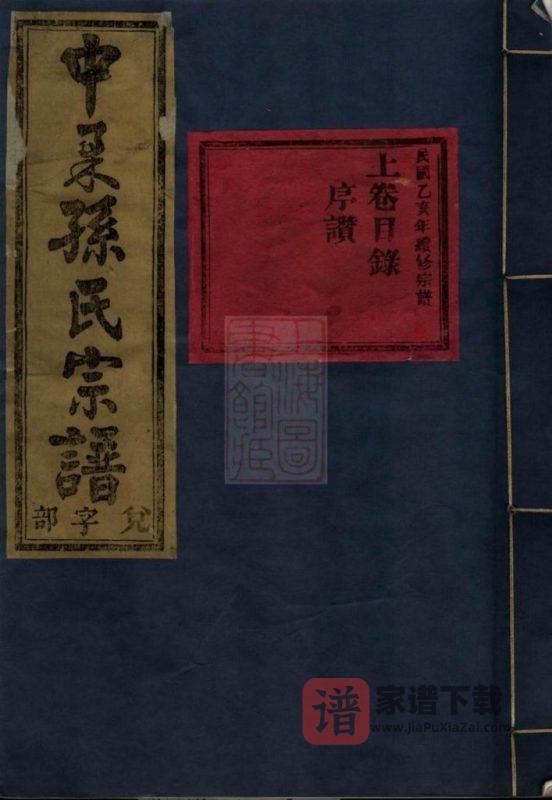 民國乙亥年續修宗譜
上卷目錄
序讚
中孫氏宗譜
兌字部
上海圖
書館
谱
家谱下载
www.jiaPuXiaZai.com